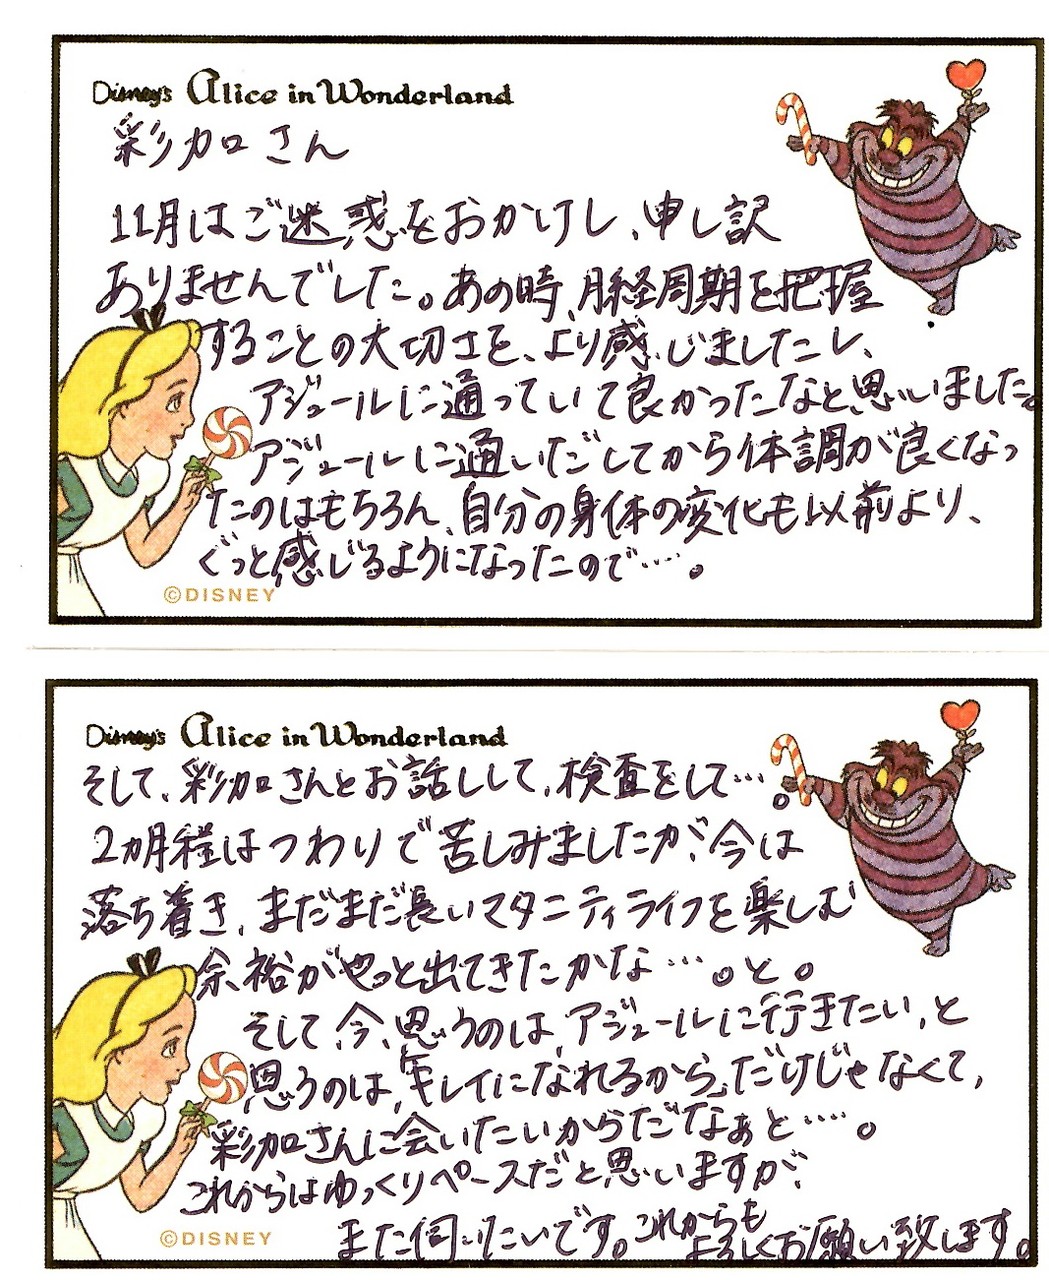 Disney's Alice in Wonderland
彩加さん
11月はご迷惑をおかけし、申し訳
ありませんでした。あの時、月経周期を把握
することの大切さを、より感じましたし、
アジュールに通っていて良かったなと思いました。
アジュールに通いだしてから体調が良くなっ
たのはもちろん、自分の身体の変化も以前より、
ぐっと感じるようになったので…。
©DISNEY
Disney's Alice in Wonderland
そして、彩加さんとお話しして、検査をして…。
2ヵ月程はつわりで苦しみましたが、今は
落ち着き、まだまだ長いマタニティライフを楽しむ
余裕がやっと出てきたかな…。と。
そして、今、思うのは、アジュールに行きたい、と
思うのは、「キレイになれるから」だけじゃなくて、
彩加さんに会いたいからだなぁと……。
これからはゆっくりペースだと思いますが、
また伺いたいです。これからも
よろしくお願い致します。
©DISNEY